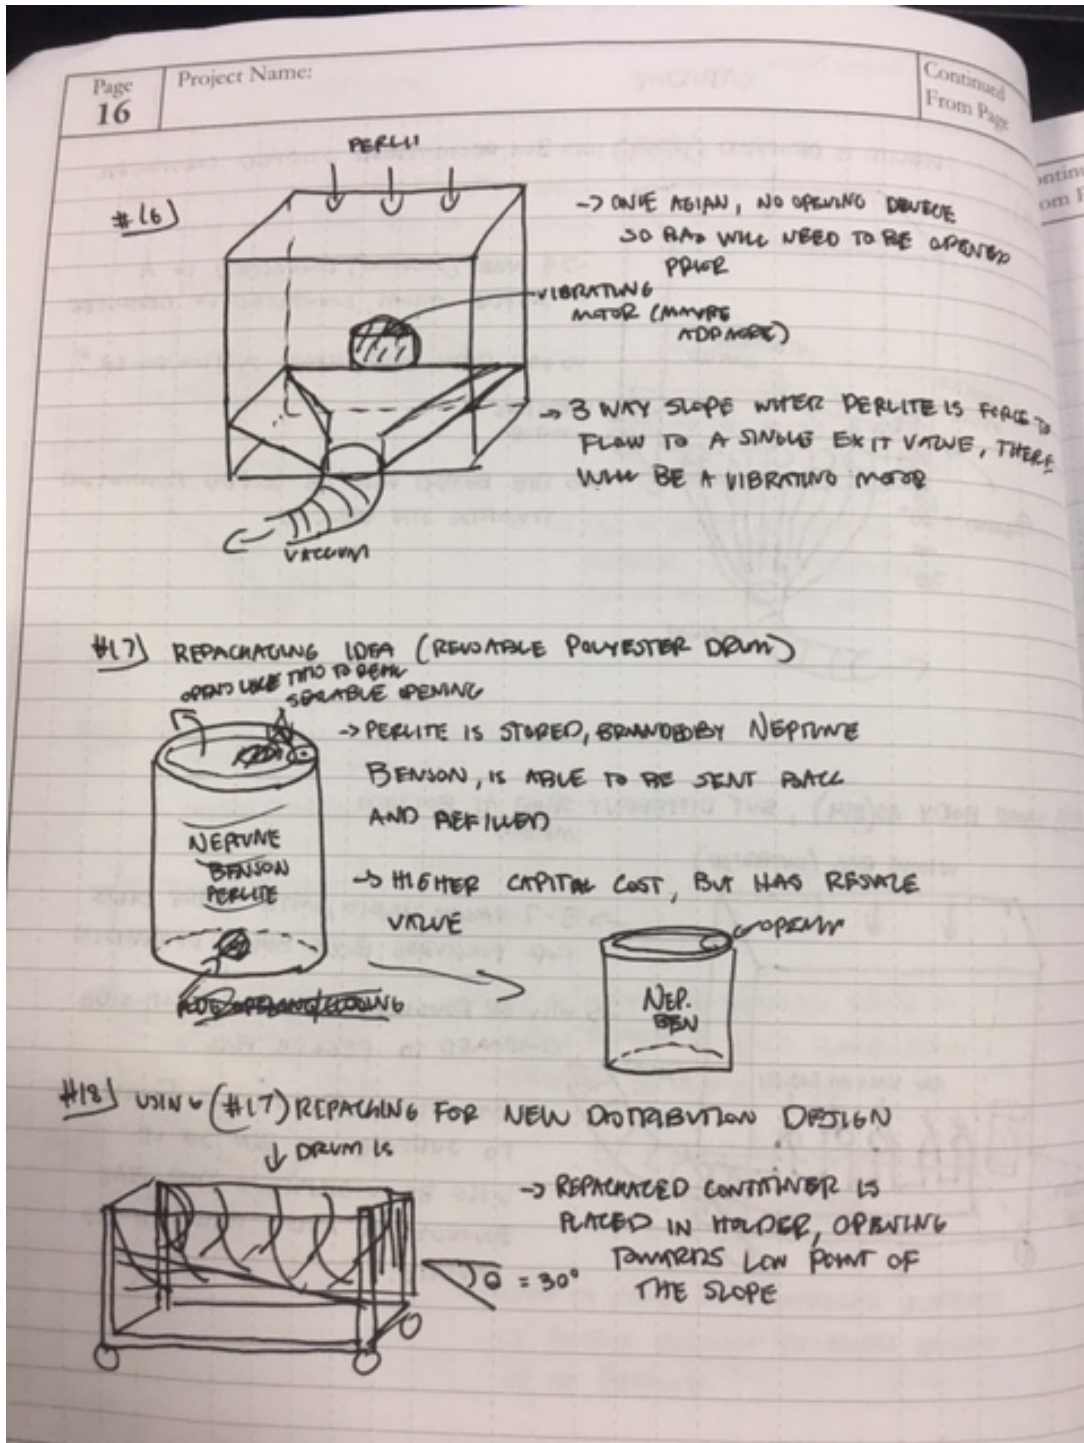 Page
16
Project Name:
Continued
From Page
PERLI
#16)
-> ONCE AGIAN, NO OPENING DEVIECE
SO BAG WILL NEED TO BE OPENED
PRIOR
VIBRATING
MOTOR (MAYBE
ADD MORE)
-> 3 WAY SLOPE WHER PERLITE IS FORCE TO
FLOW TO A SINGLE EXIT VALVE, THERE
WILL BE A VIBRATING MOTOR
VACCUUM
#17) REPACKAGING IDEA (REUSABLE POLYESTER DRUM)
OPENS LIKE THIS TO
OPENING
-> PERLITE IS STORED, BRANDED BY NEPTUNE
BENSON, IS ABLE TO BE SENT BACK
AND REFILLED
NEPTUNE
BENSON
PERLITE
-> HIGHER CAPITAL COST, BUT HAS RESALE
VALUE
NEP.
BEN
#18) USING (#17) REPACKING FOR NEW DISTRIBUTION DESIGN
↓ DRUM IS
-> REPACKAGED CONTAINER IS
PLACED IN HOLDER, OPENING
TOWARDS LOW POINT OF
THE SLOPE
θ = 30°